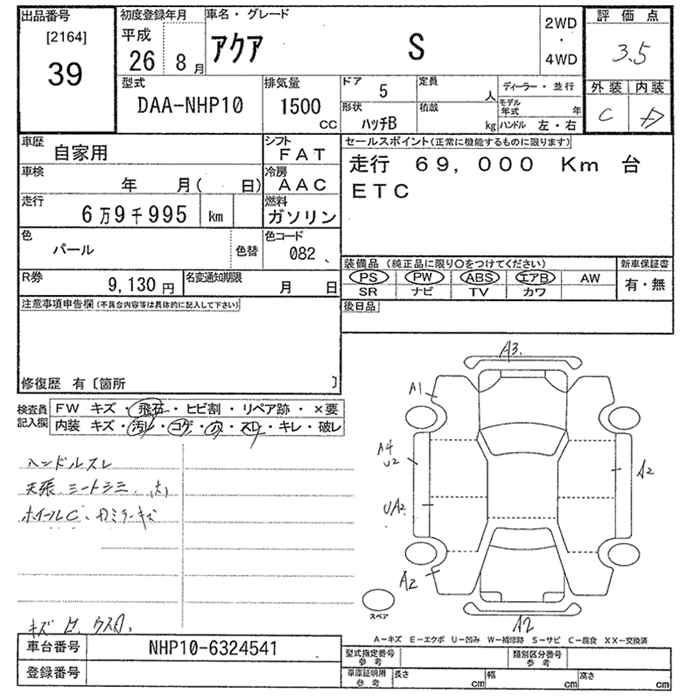 出品番号
[2164]
39
初度登録年月
平成
26年 8月
車名・グレード
アクア S
2WD
・
4WD
評価点
3.5
外装 内装
C D
型式
DAA-NHP10
排気量
1500
CC
ドア 5
定員 人
形状 ハッチB
積載 kg
ディーラー・並行
モデル年式 年
ハンドル 左・右
車歴
自家用
シフト
FAT
車検
年 月( 日)
冷房
AAC
走行
6万9千995 km
燃料
ガソリン
色
パール
色替
色コード
082
R券
9,130円
名変通知期限
月 日
セールスポイント(正常に機能するものに限ります)
走行 69,000 Km 台
ETC
装備品(純正品に限り○をつけてください)
PS PW ABS エアB AW
SR ナビ TV カワ
新車保証書
有・無
後日品
注意事項申告欄(不具合内容等は具体的に記入して下さい)
修復歴 有〔箇所 〕
検査員記入欄
FW キズ・飛石・ヒビ割・リペア跡・×要
内装 キズ・汚レ・コゲ・穴・スレ・キレ・破レ
ハンドルスレ
天張、シートシミ
キズ
A3
A1
A4
U2
UA2
A2
A2
A2
スペア
A-キズ E-エクボ U-凹み W-補修跡 S-サビ C-腐食 XX-交換済
車台番号
NHP10-6324541
登録番号
型式指定番号
参考
類別区分番号
参考
車庫証明用
参考
長さ cm
幅 cm
高さ cm